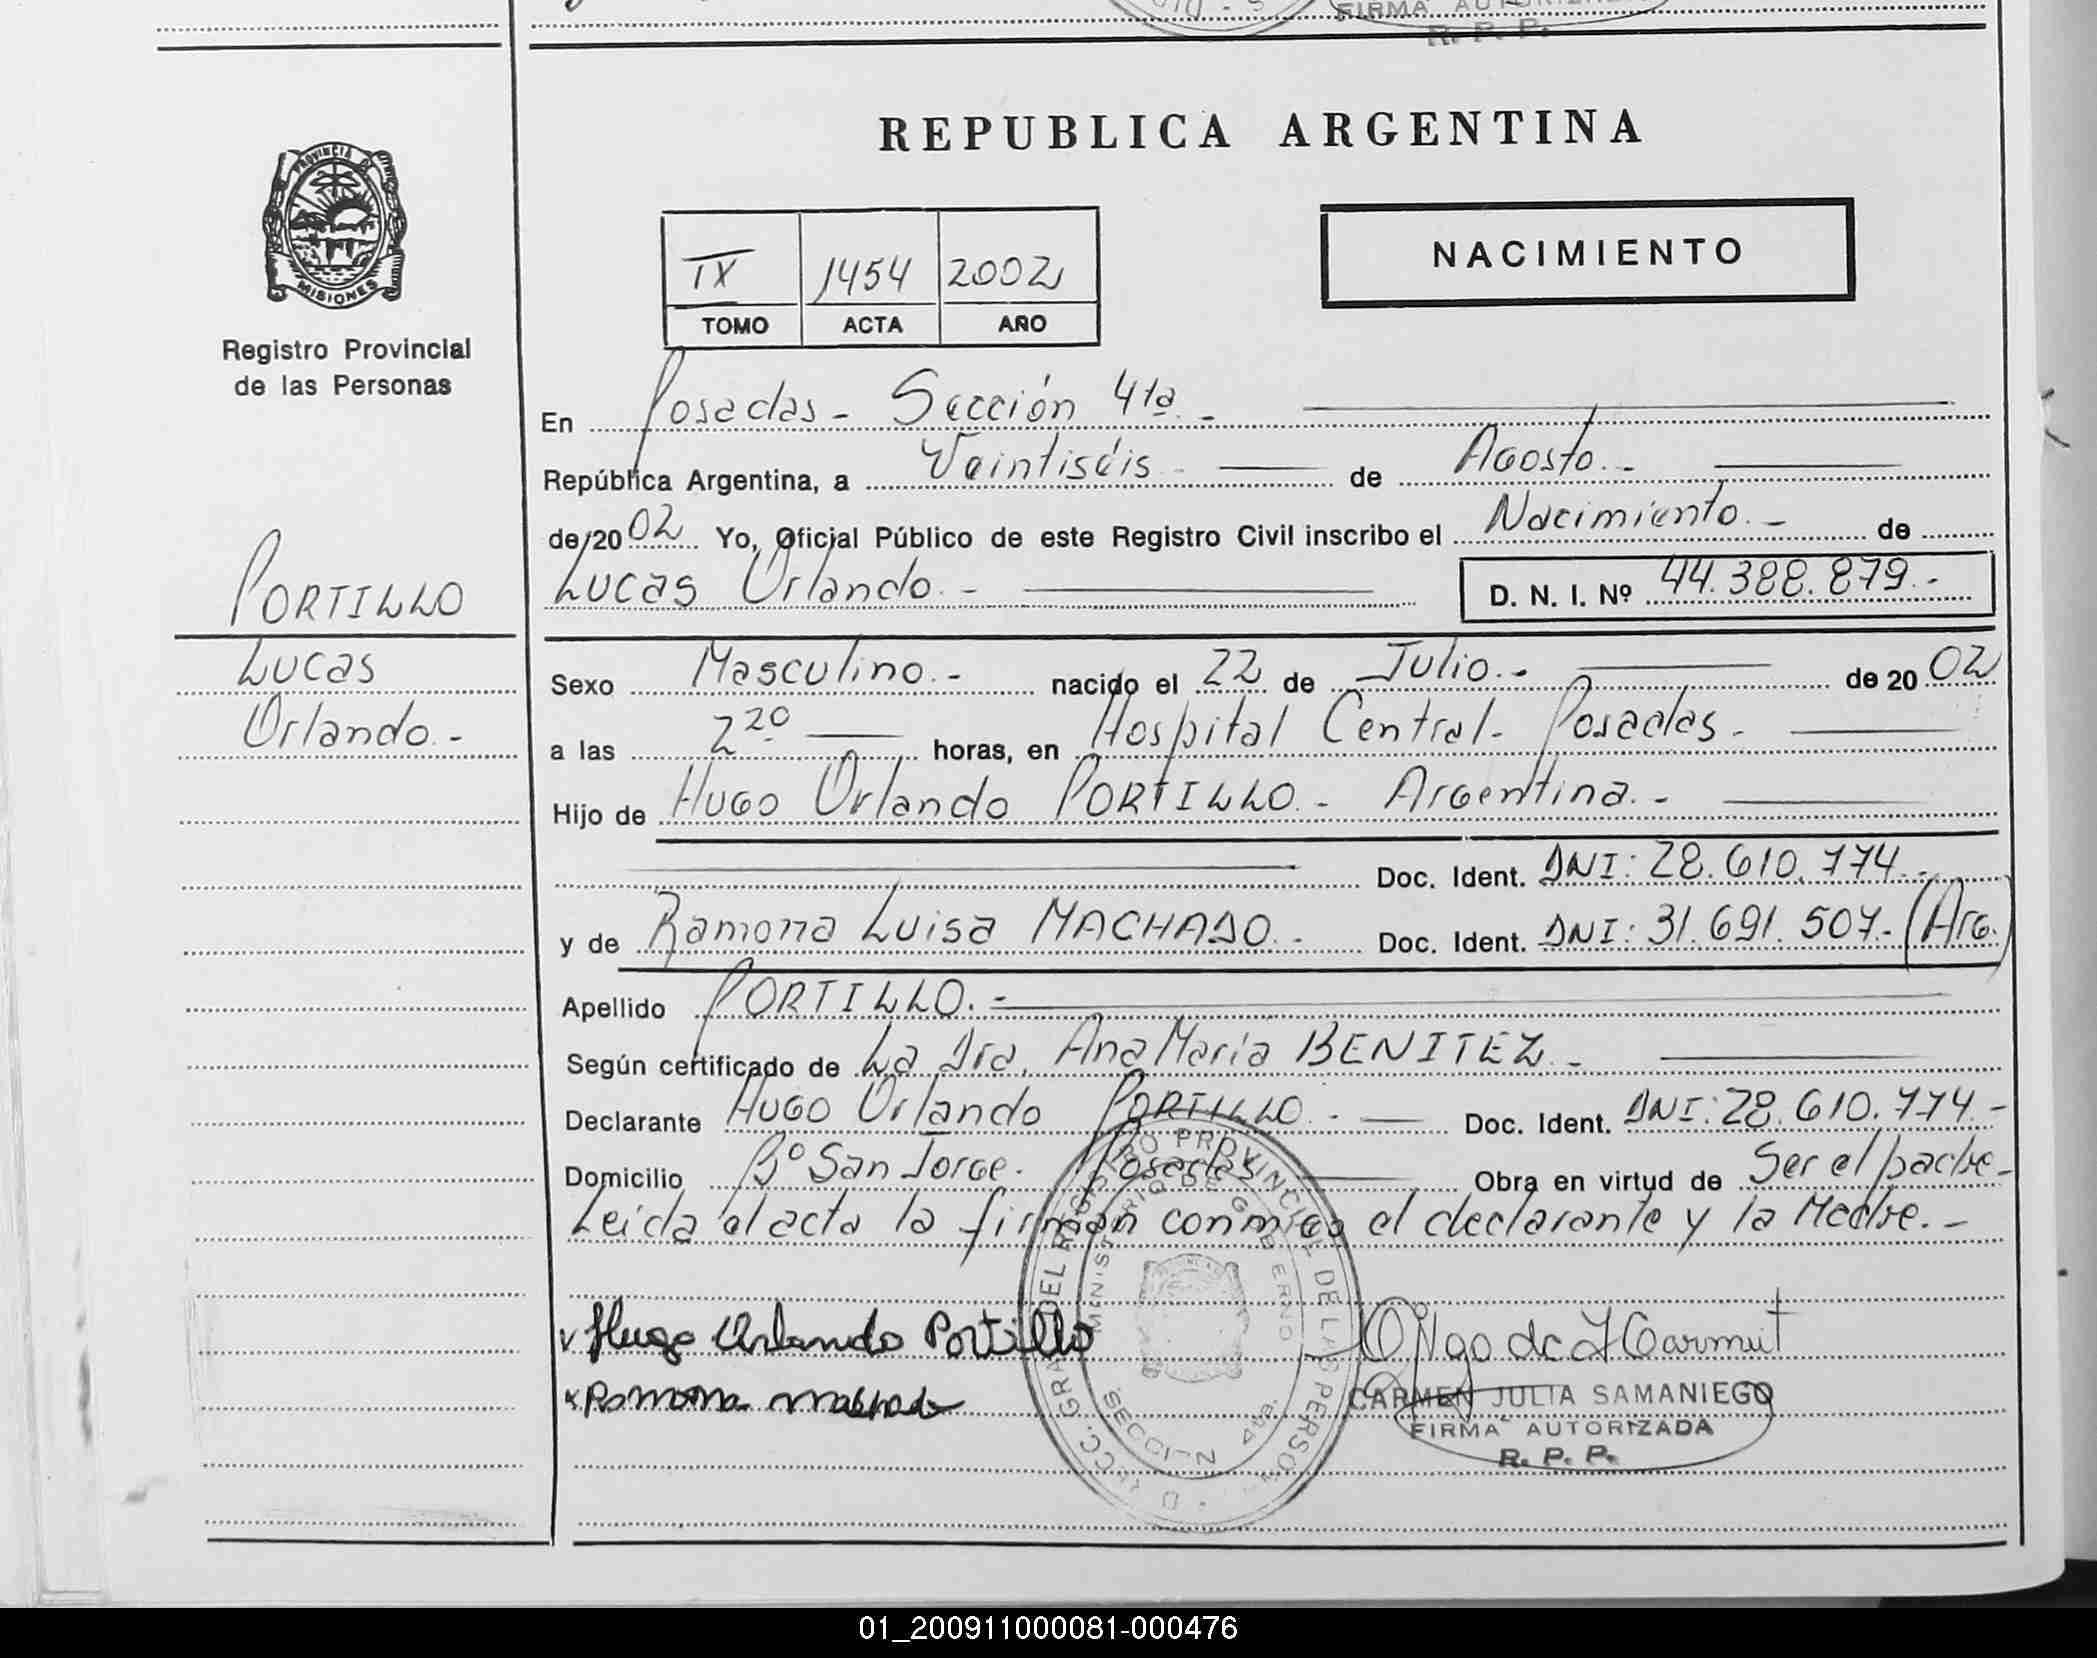 FIRMA AUTORIZADA
R. P. P.
REPUBLICA ARGENTINA
PROVINCIA DE
MISIONES
Registro Provincial
de las Personas
NACIMIENTO
IX 1454 2002
TOMO ACTA AÑO
En Posadas - Sección 4ta. -
República Argentina, a Veintiséis - de Agosto. -
de 20 02 Yo, Oficial Público de este Registro Civil inscribo el Nacimiento. - de
Lucas Orlando. - D. N. I. Nº 44.388.879. -
PORTILLO
Lucas
Orlando. -
Sexo Masculino. - nacido el 22 de Julio. - de 20 02
a las 2 20 horas, en Hospital Central - Posadas. -
Hijo de Hugo Orlando PORTILLO. - Argentina. -
Doc. Ident. DNI: 28.610.774. -
y de Ramona Luisa MACHADO. - Doc. Ident. DNI: 31.691.507. - (Arg.)
Apellido PORTILLO. -
Según certificado de La Dra. Ana María BENITEZ. -
Declarante Hugo Orlando PORTILLO. - Doc. Ident. DNI: 28.610.774. -
Domicilio Bº San Jorge. Posadas Obra en virtud de Ser el padre. -
Leída el acta la firman conmigo el declarante y la Madre. -
Hugo Orlando Portillo
Ramona Machado
CARMEN JULIA SAMANIEGO
FIRMA AUTORIZADA
R. P. P.
DEL REGISTRO PROVINCIAL DE LAS PERSONAS
MINISTERIO DE GOBIERNO
SECCION 4ta.
01_200911000081-000476